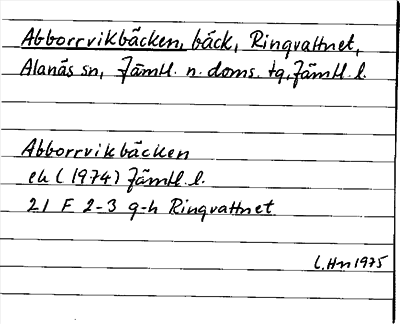 Abborrvikbäcken, bäck, Ringvattnet,
Alanäs sn, Jämtl. n. doms. tg, Jämtl. l.
Abborrvikbäcken
ek (1974) Jämtl. l.
21 F 2-3 g-h Ringvattnet
L. Hn 1975